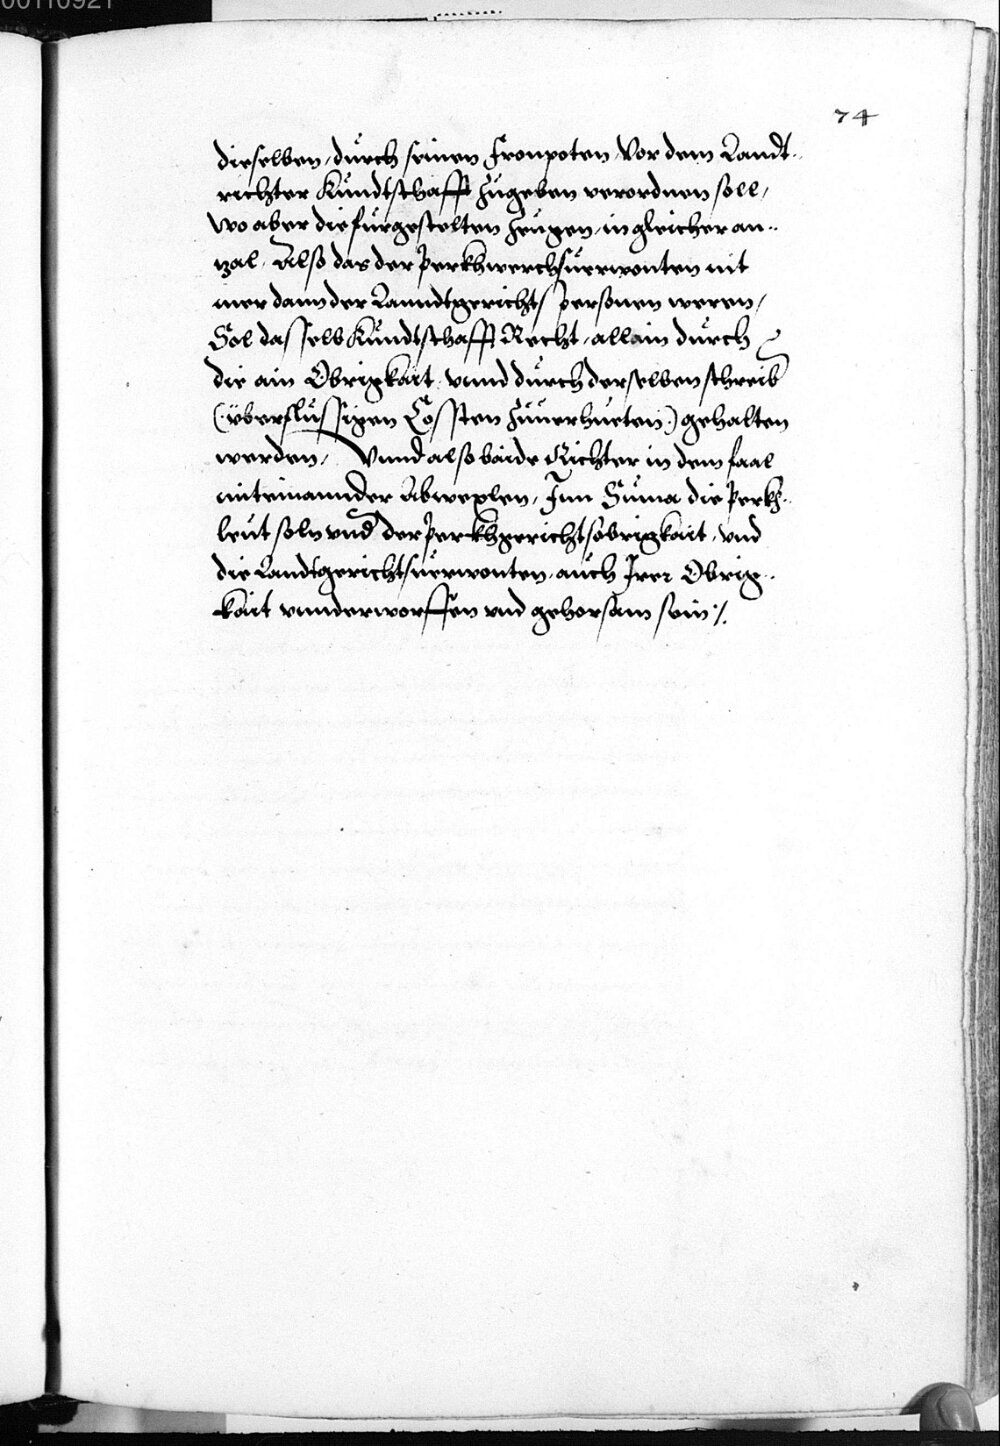 00110921
74
dieselben, durch seinen Fronpoten, Vor dem Landt..
richter Kundtschafft Zugeben verordnen soll,
Wo aber die furgestelten Zeugen, in gleicher an..
zal, Also das der Perkhwerchsuerwonten nit
mer dann der Lanndtgerichts personen weren,
Sol dasselb Kundtschafft Recht, allain durch
die ain Obrigkait, vnnd durch derselben schreib
(:überflüssigen Cossten Zuuerhueten:) gehalten
werden, Vnnd also baide Richter in dem faal
miteinannder Abwexlen, Inn Suma die Perkh..
leut soln vnd der Perkhgerichtsobrigkait, vnd
die Landtgerichtsuerwonten, auch Irer Obrig..
kait vnnderworffen vnd gehorsam sein :/.